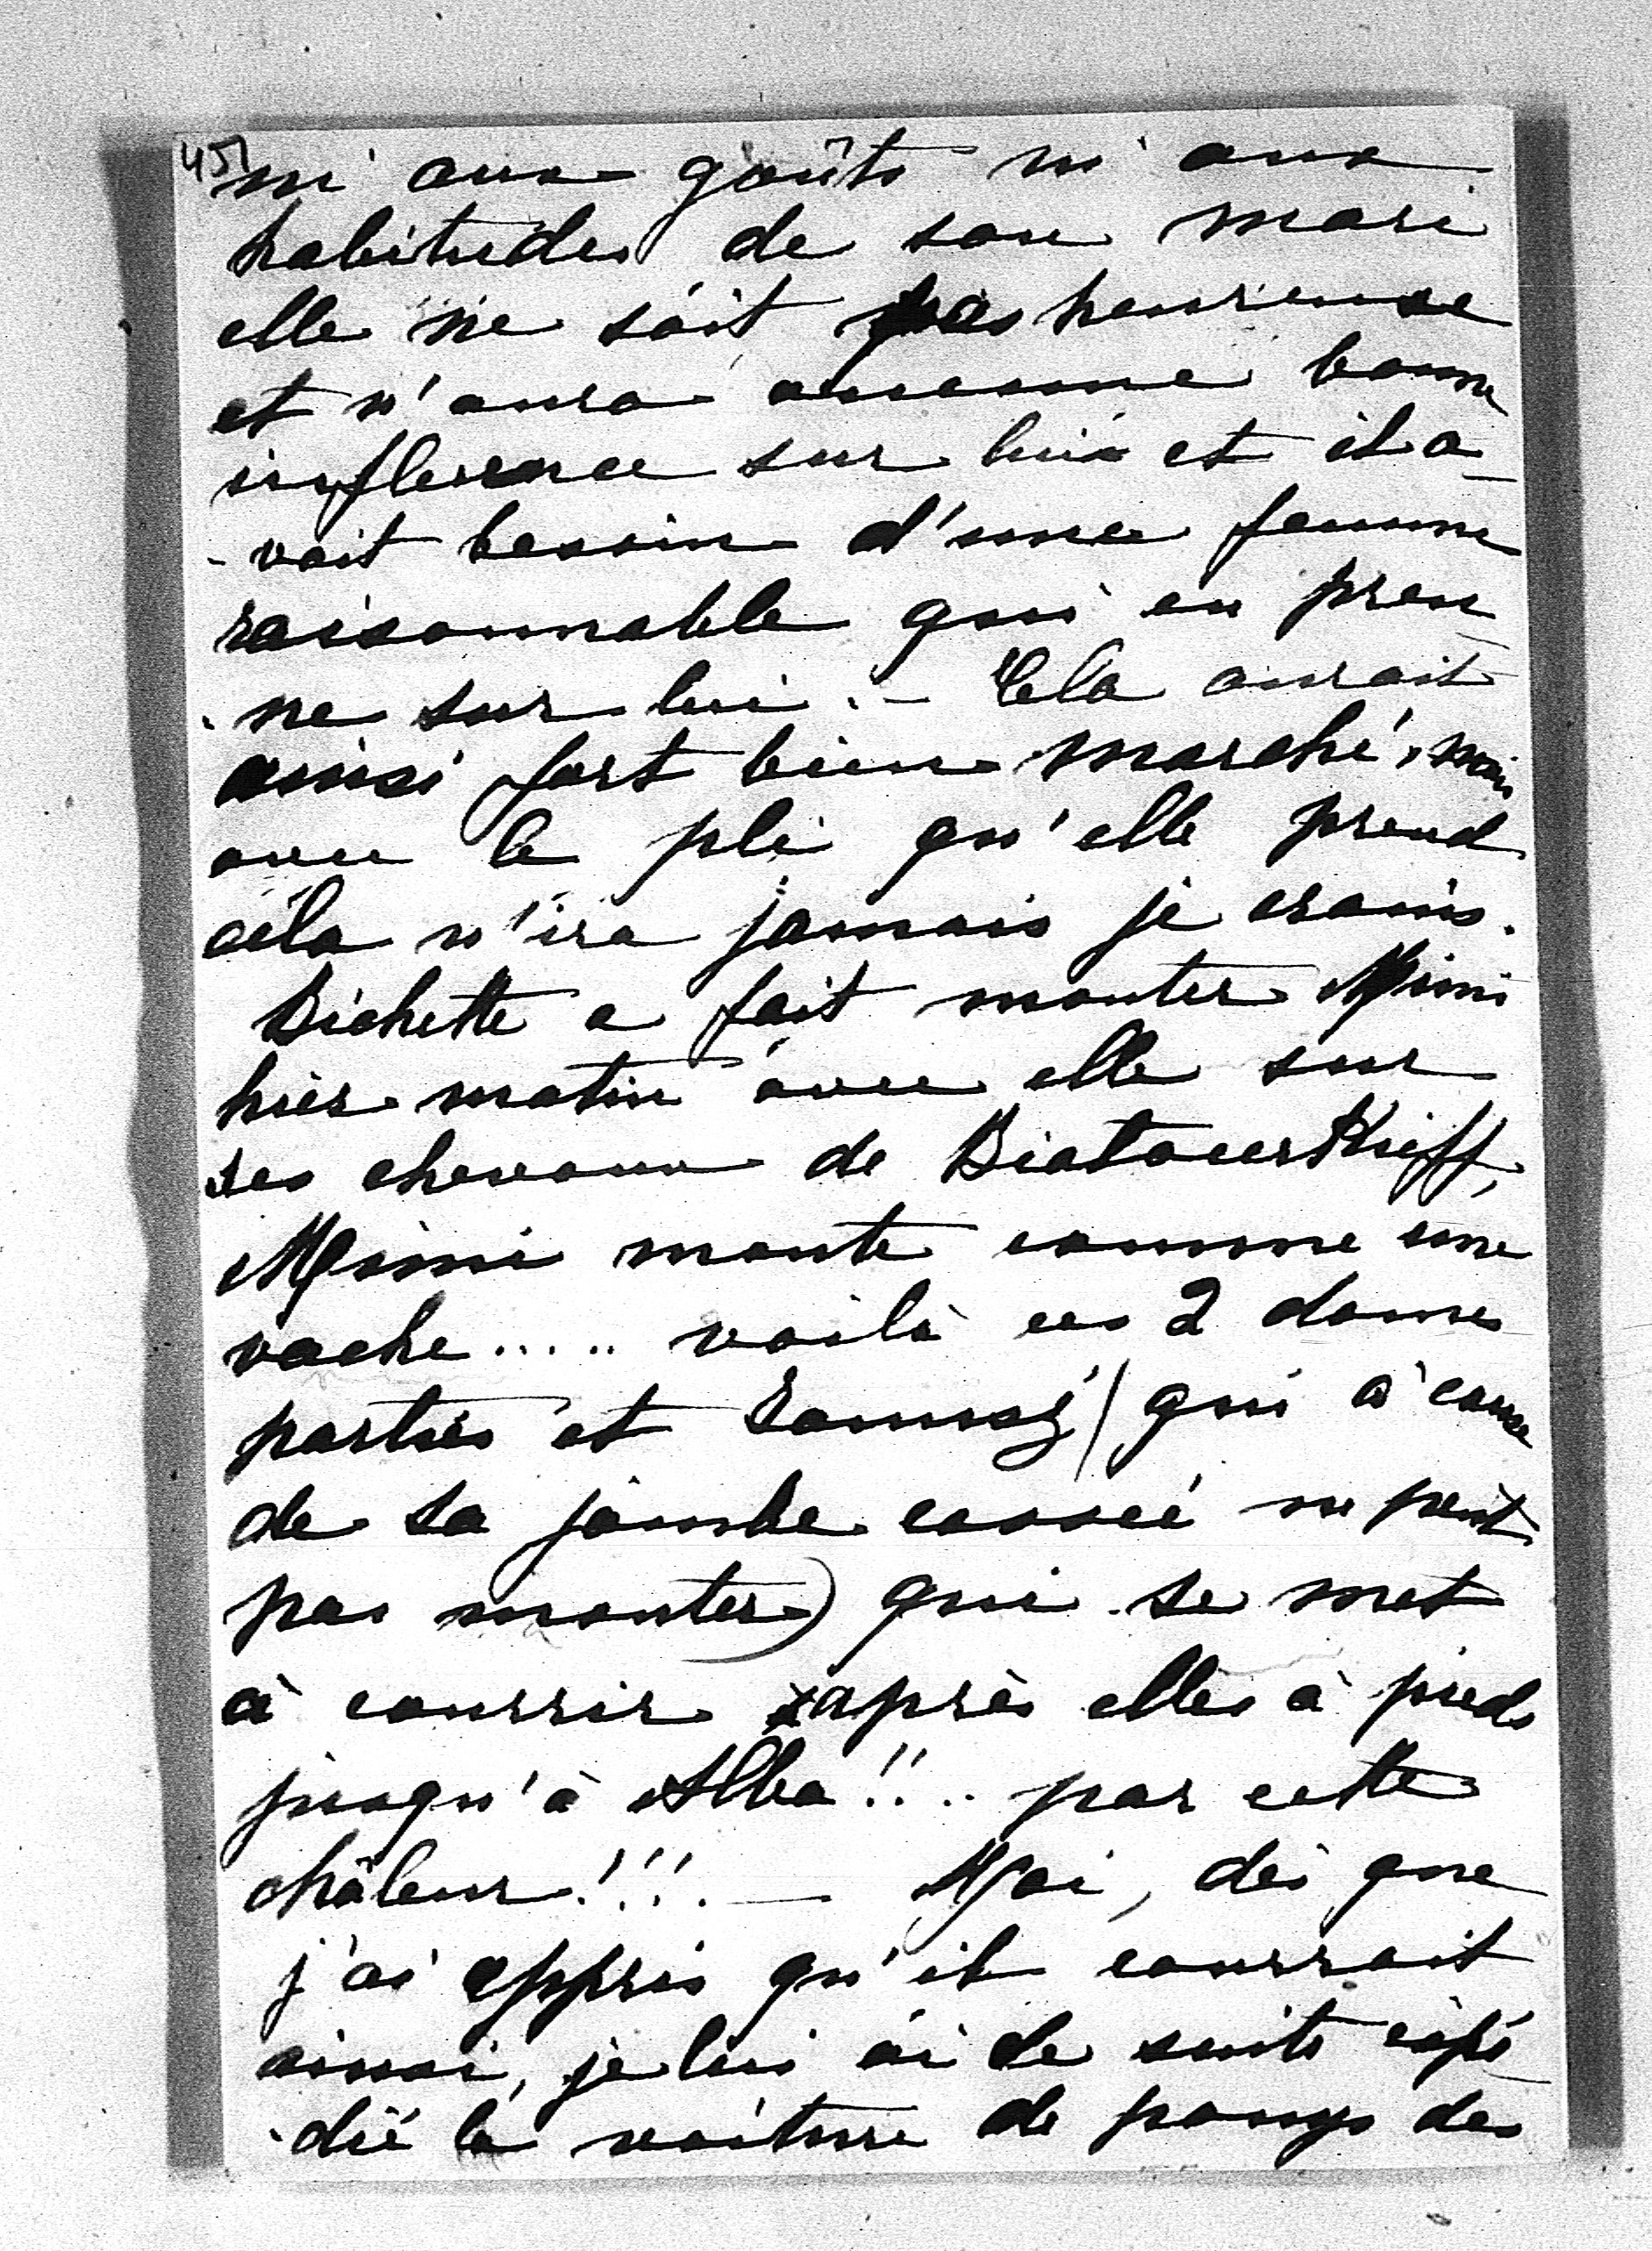 45)
ni aux goûts ni aux
habitudes de son mari
elle ne soit pas heureuse
et n'aura aucune bonne
influence sur lui et il a-
-vait besoin d'une femme
raisonnable qui en pren
-ne sur lui. - Cela aurait
ainsi fort bien marché, mais
avec le pli qu'elle prend
cela n'ira jamais je crains.
Bichette a fait monter Mimi
hier matin avec elle sur
ses chevaux de
Mimi monte comme une
vache..... voilà ces 2 dames
parties et (qui à cause
de sa jambe cassée ne peut
pas monter) qui se met
à courrir après elles à pieds
jusqu'à Alba!!.. par cette
châleur!!! — Moi, dès que
j'ai appris qu'il courrait
ainsi, je lui ai de suite expé
-dié la voiture de ponys des